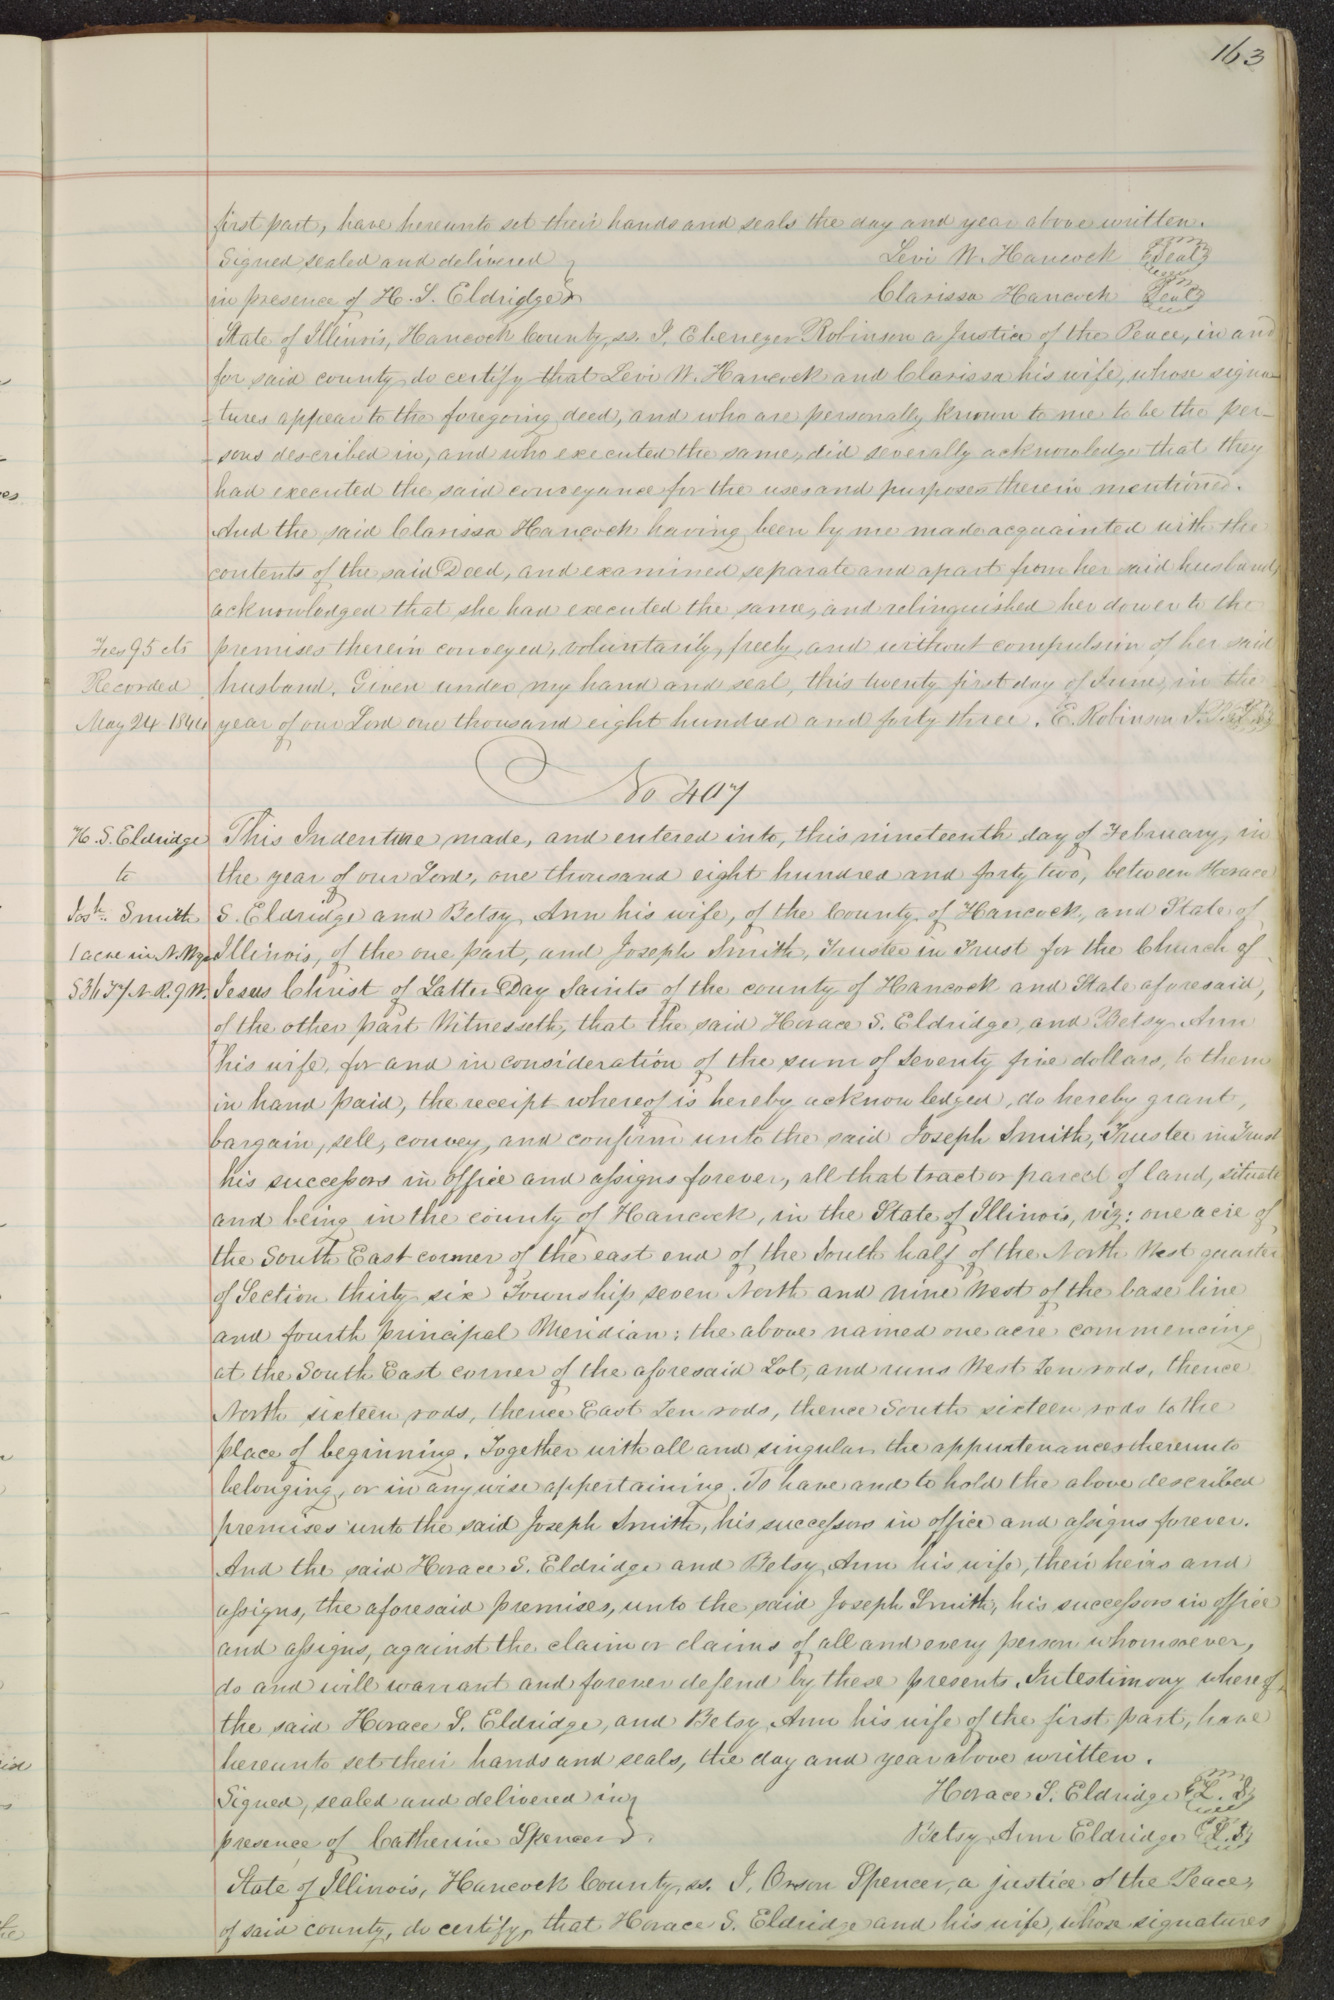 163
first part, have hereunto set their hands and seals the day and year above written.
Signed sealed and delivered Levi W. Hancock Seal
in presence of H. S. Eldridge Clarissa Hancock Seal
State of Illinois, Hancock County, ss. I, Ebenezer Robinson a Justice of the Peace, in and
for said county do certify that Levi W. Hancock and Clarissa his wife, whose signa-
-tures appear to the foregoing deed, and who are personally known to me to be the per-
-sons described in, and who executed the same, did severally acknowledge that they
had executed the said conveyance for the uses and purposes therein mentioned.
And the said Clarissa Hancock having been by me made acquainted with the
contents of the said Deed, and examined separate and apart from her said husband,
acknowledged that she had executed the same, and relinquished her dower to the
Fees 95 cts premises therein conveyed, voluntarily, freely, and without compulsion of her said
Recorded husband. Given under my hand and seal, this twenty first day of June, in the
May 24 1844 year of our Lord one thousand eight hundred and forty three. E. Robinson J.P.
No 407
H. S. Eldridge This Indenture made, and entered into, this nineteenth day of February, in
to the year of our Lord, one thousand eight hundred and forty two, between Horace
Josh. Smith S. Eldridge and Betsy Ann his wife, of the County of Hancock, and State of
1 acre in N.W.qr Illinois, of the one part, and Joseph Smith, Trustee in Trust for the Church of
S 36 T 7 N. R. 9 W. Jesus Christ of Latter Day Saints of the county of Hancock and State aforesaid,
of the other part Witnesseth, that the said Horace S. Eldridge, and Betsy Ann
his wife, for and in consideration of the sum of Seventy five dollars, to them
in hand paid, the receipt whereof is hereby acknowledged, do hereby grant,
bargain, sell, convey, and confirm unto the said Joseph Smith, Trustee in Trust
his successors in office and assigns forever, all that tract or parcel of land, situate
and being in the county of Hancock, in the State of Illinois, viz: one acre of
the South East corner of the east end of the South half of the North West quarter
of Section thirty six Township seven North and nine West of the base line
and fourth Principal Meridian: the above named one acre commencing
at the South East corner of the aforesaid Lot, and runs West Ten rods, thence
North sixteen rods, thence East Ten rods, thence South sixteen rods to the
place of beginning. Together with all and singular the appurtenances thereunto
belonging, or in any wise appertaining. To have and to hold the above described
premises unto the said Joseph Smith, his successors in office and assigns forever.
And the said Horace S. Eldridge and Betsy Ann his wife, their heirs and
assigns, the aforesaid premises, unto the said Joseph Smith, his successors in office
and assigns, against the claim or claims of all and every person whomsoever,
do and will warrant and forever defend by these presents. In testimony whereof,
the said Horace S. Eldridge, and Betsy Ann his wife of the first part, have
hereunto set their hands and seals, the day and year above written.
Signed, sealed and delivered in Horace S. Eldridge L. S.
presence of Catherine Spencer. Betsy Ann Eldridge L. S.
State of Illinois, Hancock County, ss. I, Orson Spencer, a justice of the Peace,
of said county, do certify, that Horace S. Eldridge and his wife, whose signatures